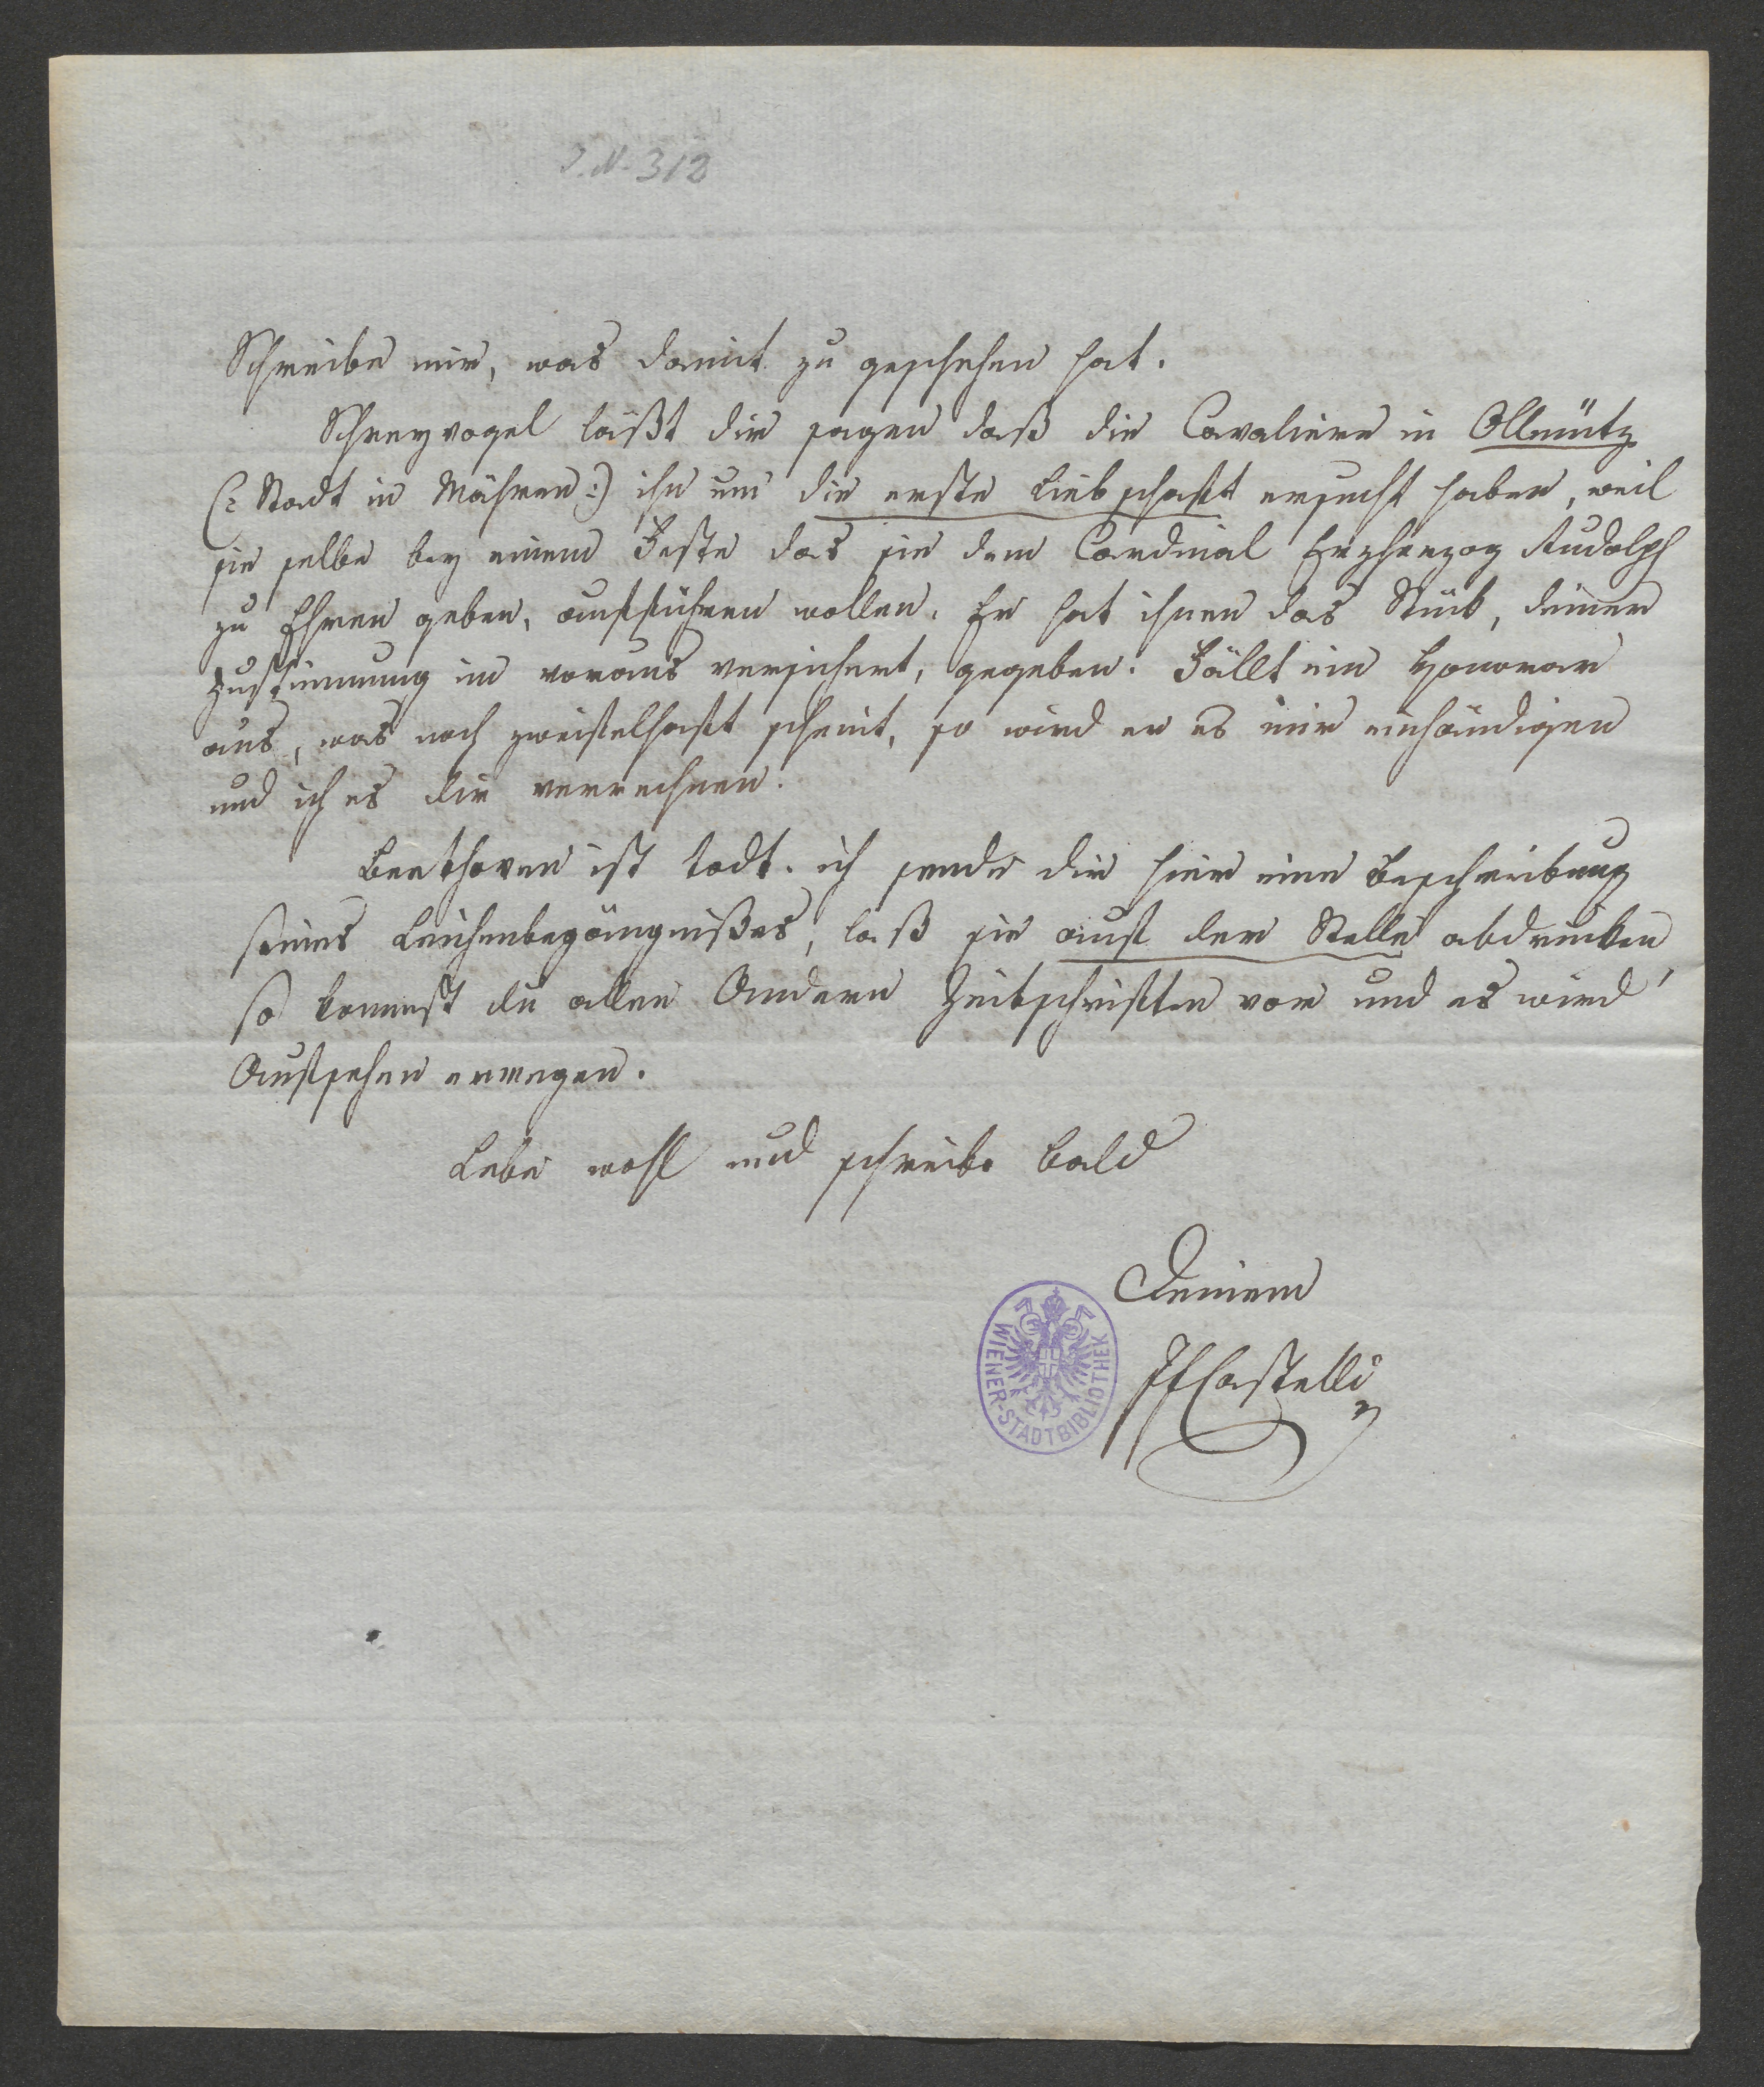 J. N. 312
Schreibe mir, was damit zu geschehen hat.
Schreyvogel läßt dir sagen daß die Cavaliere in Ollmütz
(: Stadt in Mähren :) ihn um die erste Liebschaft ersucht haben, weil
sie selbe bey einem Feste das sie dem Cardinal Erzherzog Rudolph
zu Ehren geben, aufführen wollen. Er hat ihnen das Stück, deiner
Zustimmung im voraus versichert, gegeben. Fällt ein Honorar
aus, was noch zweifelhaft scheint, so wird er es mir einhändigen
und ich es dir verrechnen.
Beethoven ist todt. ich sende dir hier eine Beschreibung
seines Leichenbegängnißes, laß sie auf der Stelle abdrucken,
so kommst du allen Andern Zeitschriften vor und es wird
Aufsehen erregen.
Lebe wohl und schreibe bald
Deinem
JFCastelli
WIENER-STADTBIBLIOTHEK